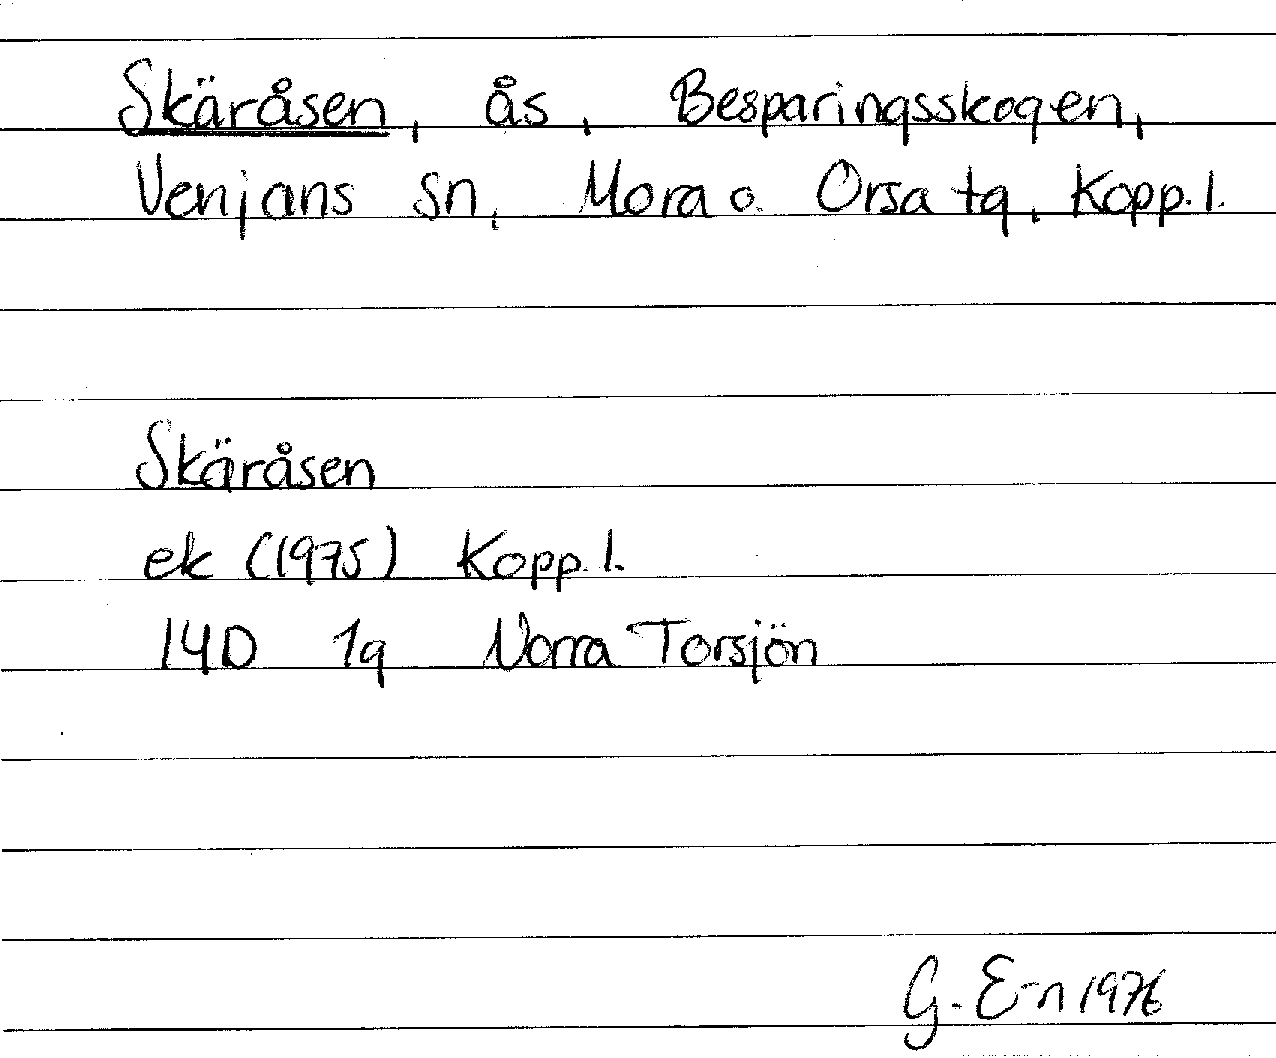 Skäråsen, ås, Besparingsskogen,
Venjans sn, Mora o. Orsa tg, Kopp. l.
Skäråsen
ek (1975) Kopp. l.
14D 1g Norra Torsjön
G. E-n 1976